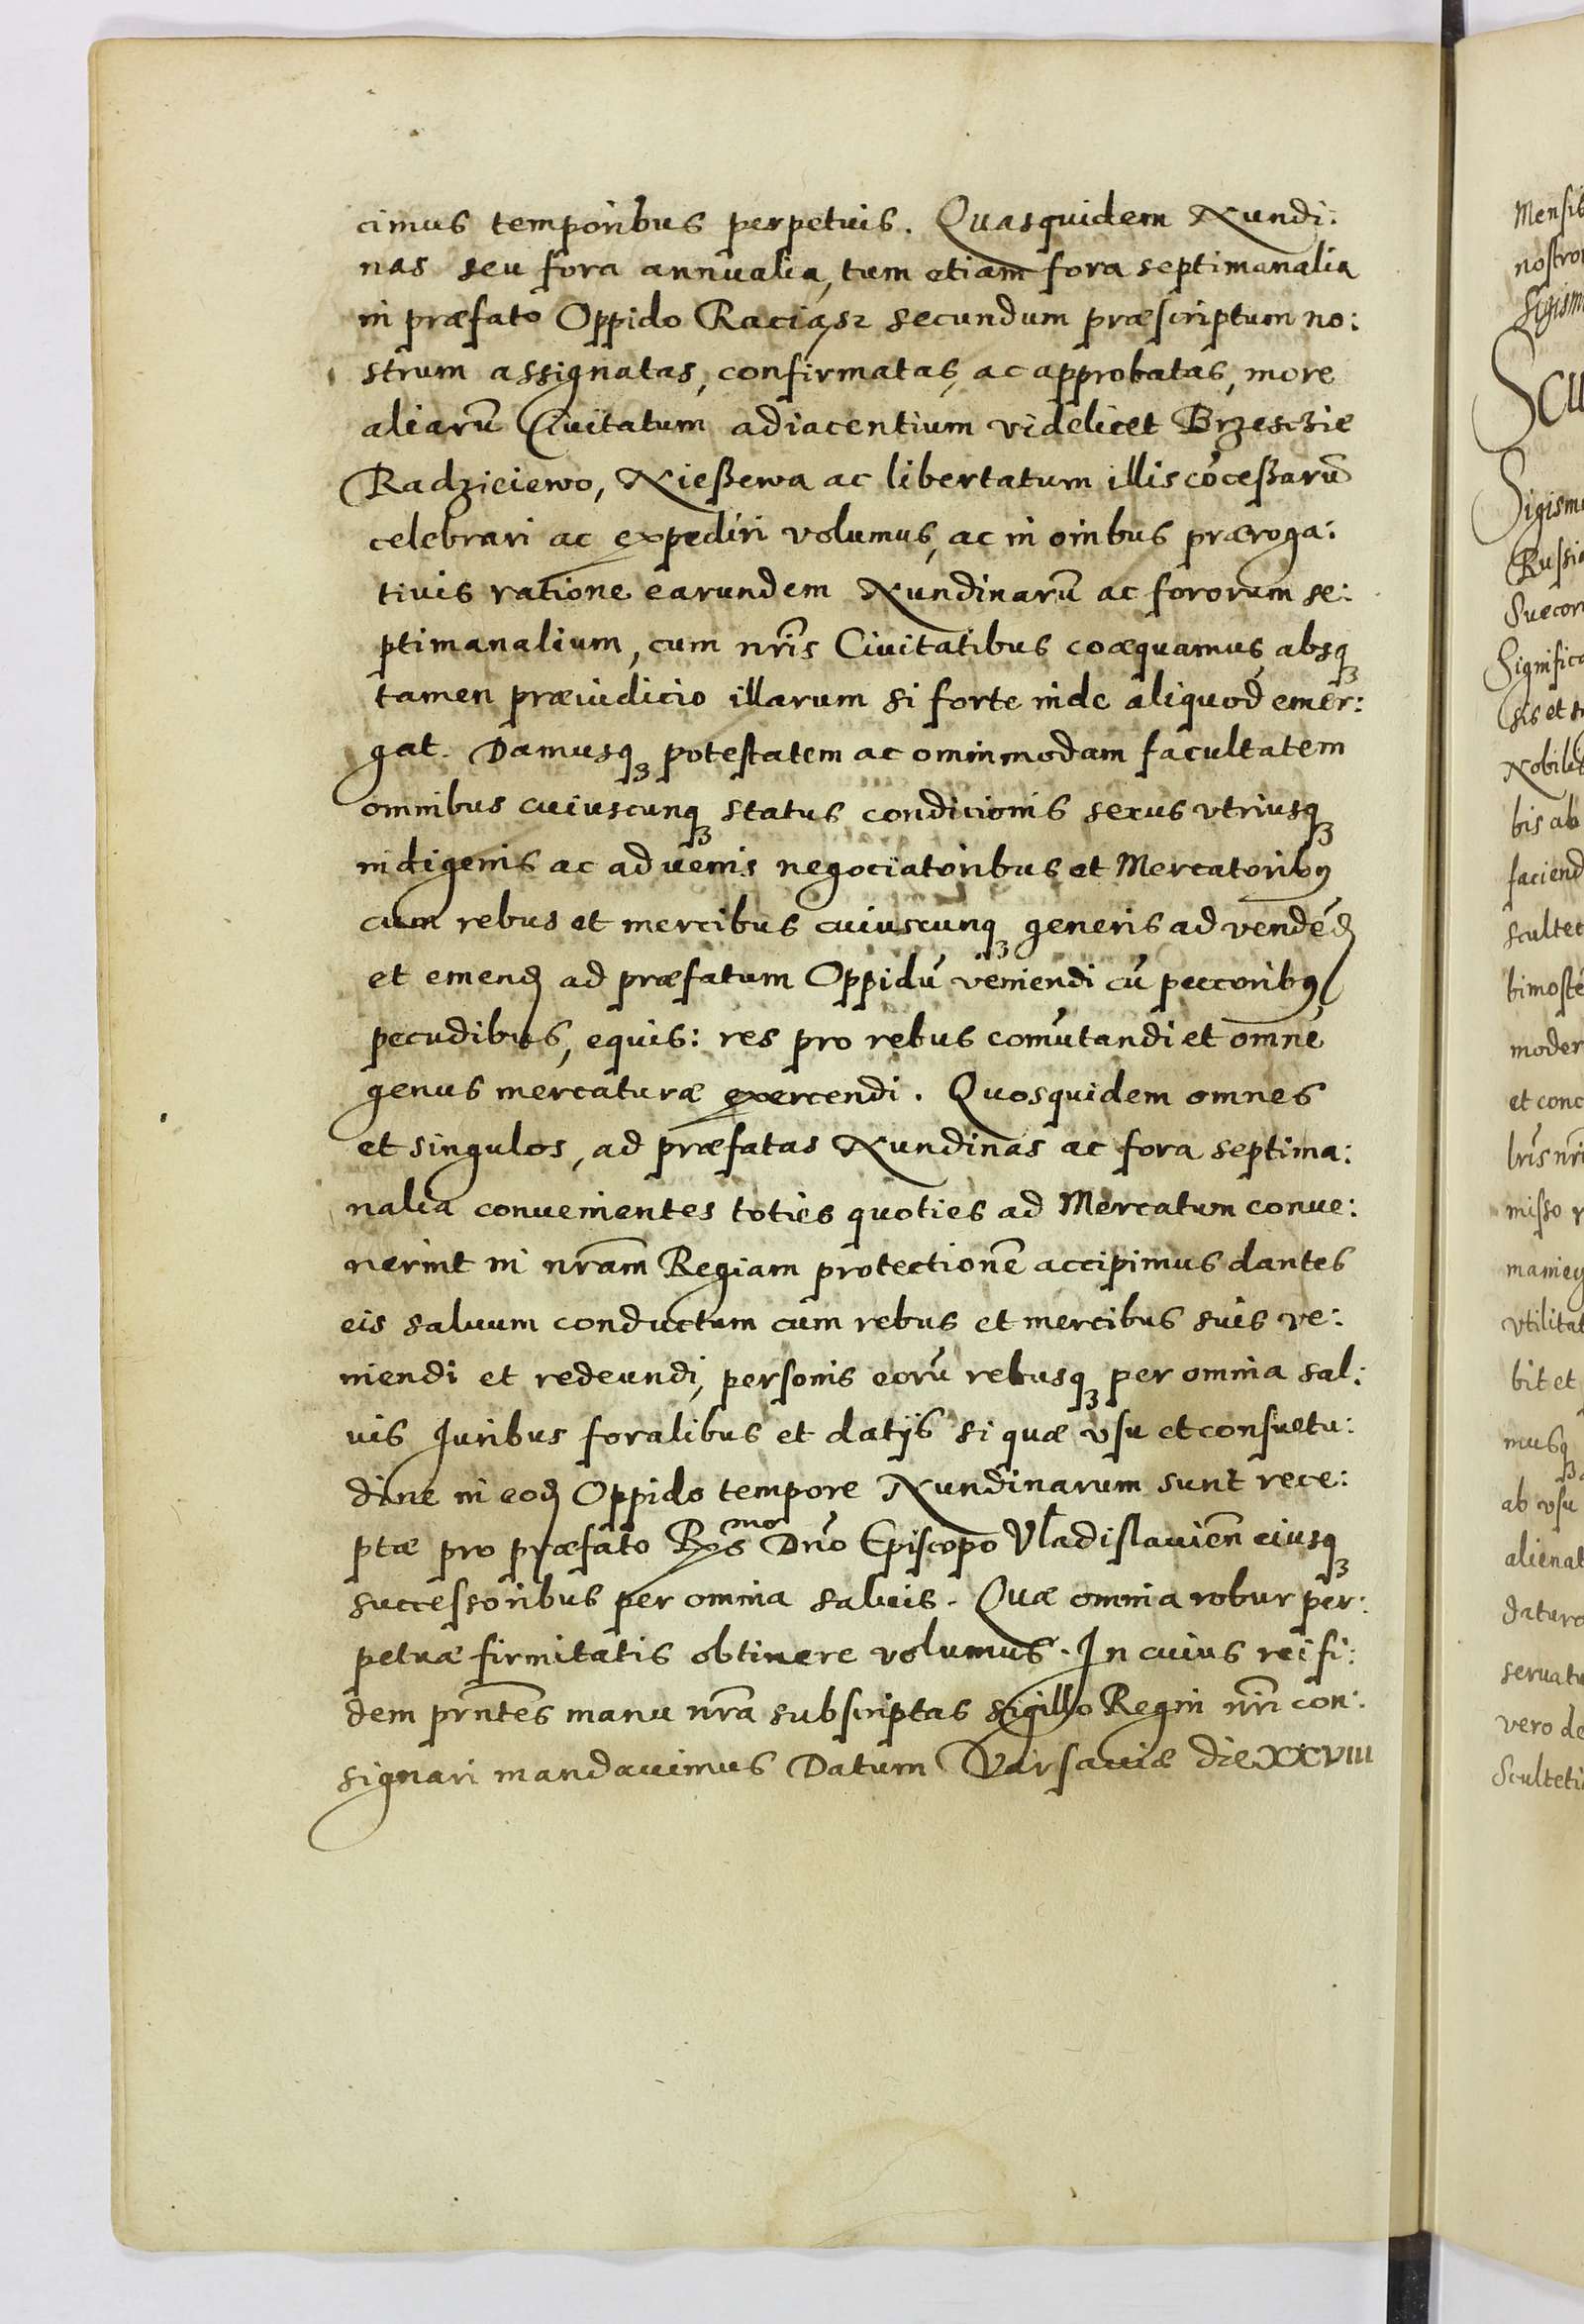 cimus temporibus perpetuis. Quasquidem Nundi:
nas seu fora annualia, tum etiam fora septimanalia
in præfato Oppido Raciąsz secundum præscriptum no:
strum assignatas, confirmatas, ac approbatas, more
aliarũ Ciuitatum adiacentium videlicet Brzesczie
Radzieiewo, Nießewa ac libertatum illis cõceßarũ
celebrari ac expediri volumus, ac in oĩnibus præroga:
tiuis ratione earundem Nundinarũ ac fororum se:
ptimanalium, cum nr̃is Ciuitatibus coæquamus, absqȝ
tamen præiudicio illarum si forte inde aliquod emer:
gat. Damusqȝ potestatem ac omnimodam facultatem
omnibus cuiuscunqȝ status condicionis sexus vtriusqȝ
indigenis ac aduenis negociatoribus et Mercatoribꝯ
cum rebus et mercibus cuiuscunqȝ generis ad vendẽd
et emend ad præfatum Oppidũ veniendi cũ pecoribꝯ
pecudibus, equis: res pro rebus com̃utandi et omne
genus mercaturæ exercendi. Quosquidem omnes
et singulos, ad præfatas Nundinas ac fora septima:
nalia conuenientes toties quoties ad Mercatum conue:
nerint in nr̃am Regiam protectionẽ accipimus dantes
eis saluum conductum cum rebus et mercibus suis ve:
niendi et redeundi, personis eorũ rebusqȝ per omnia sal:
uis Juribus foralibus et datijs si quæ vsu et consuetu:
dine in eod Oppido tempore Nundinarum sunt rece:
ptæ pro præfato Rẽs mo Dño Episcopo Vladislauieñ eiusqȝ
successoribus per omnia saluis. Quæ omnia robur per:
petuæ firmitatis obtinere volumus. In cuius rei fi:
dem pr̃ntes manu nr̃a subscriptas sigillo Regni nr̃i con:
signari mandauimus Datum Varsauiæ die XXVIII
Mensis
Russi
Nobili
bis ab
faciend
scultet
moder
et conc
misso
vtilitat
bit et
ab vsu
alienat
seruatu
vero de
Sculteti